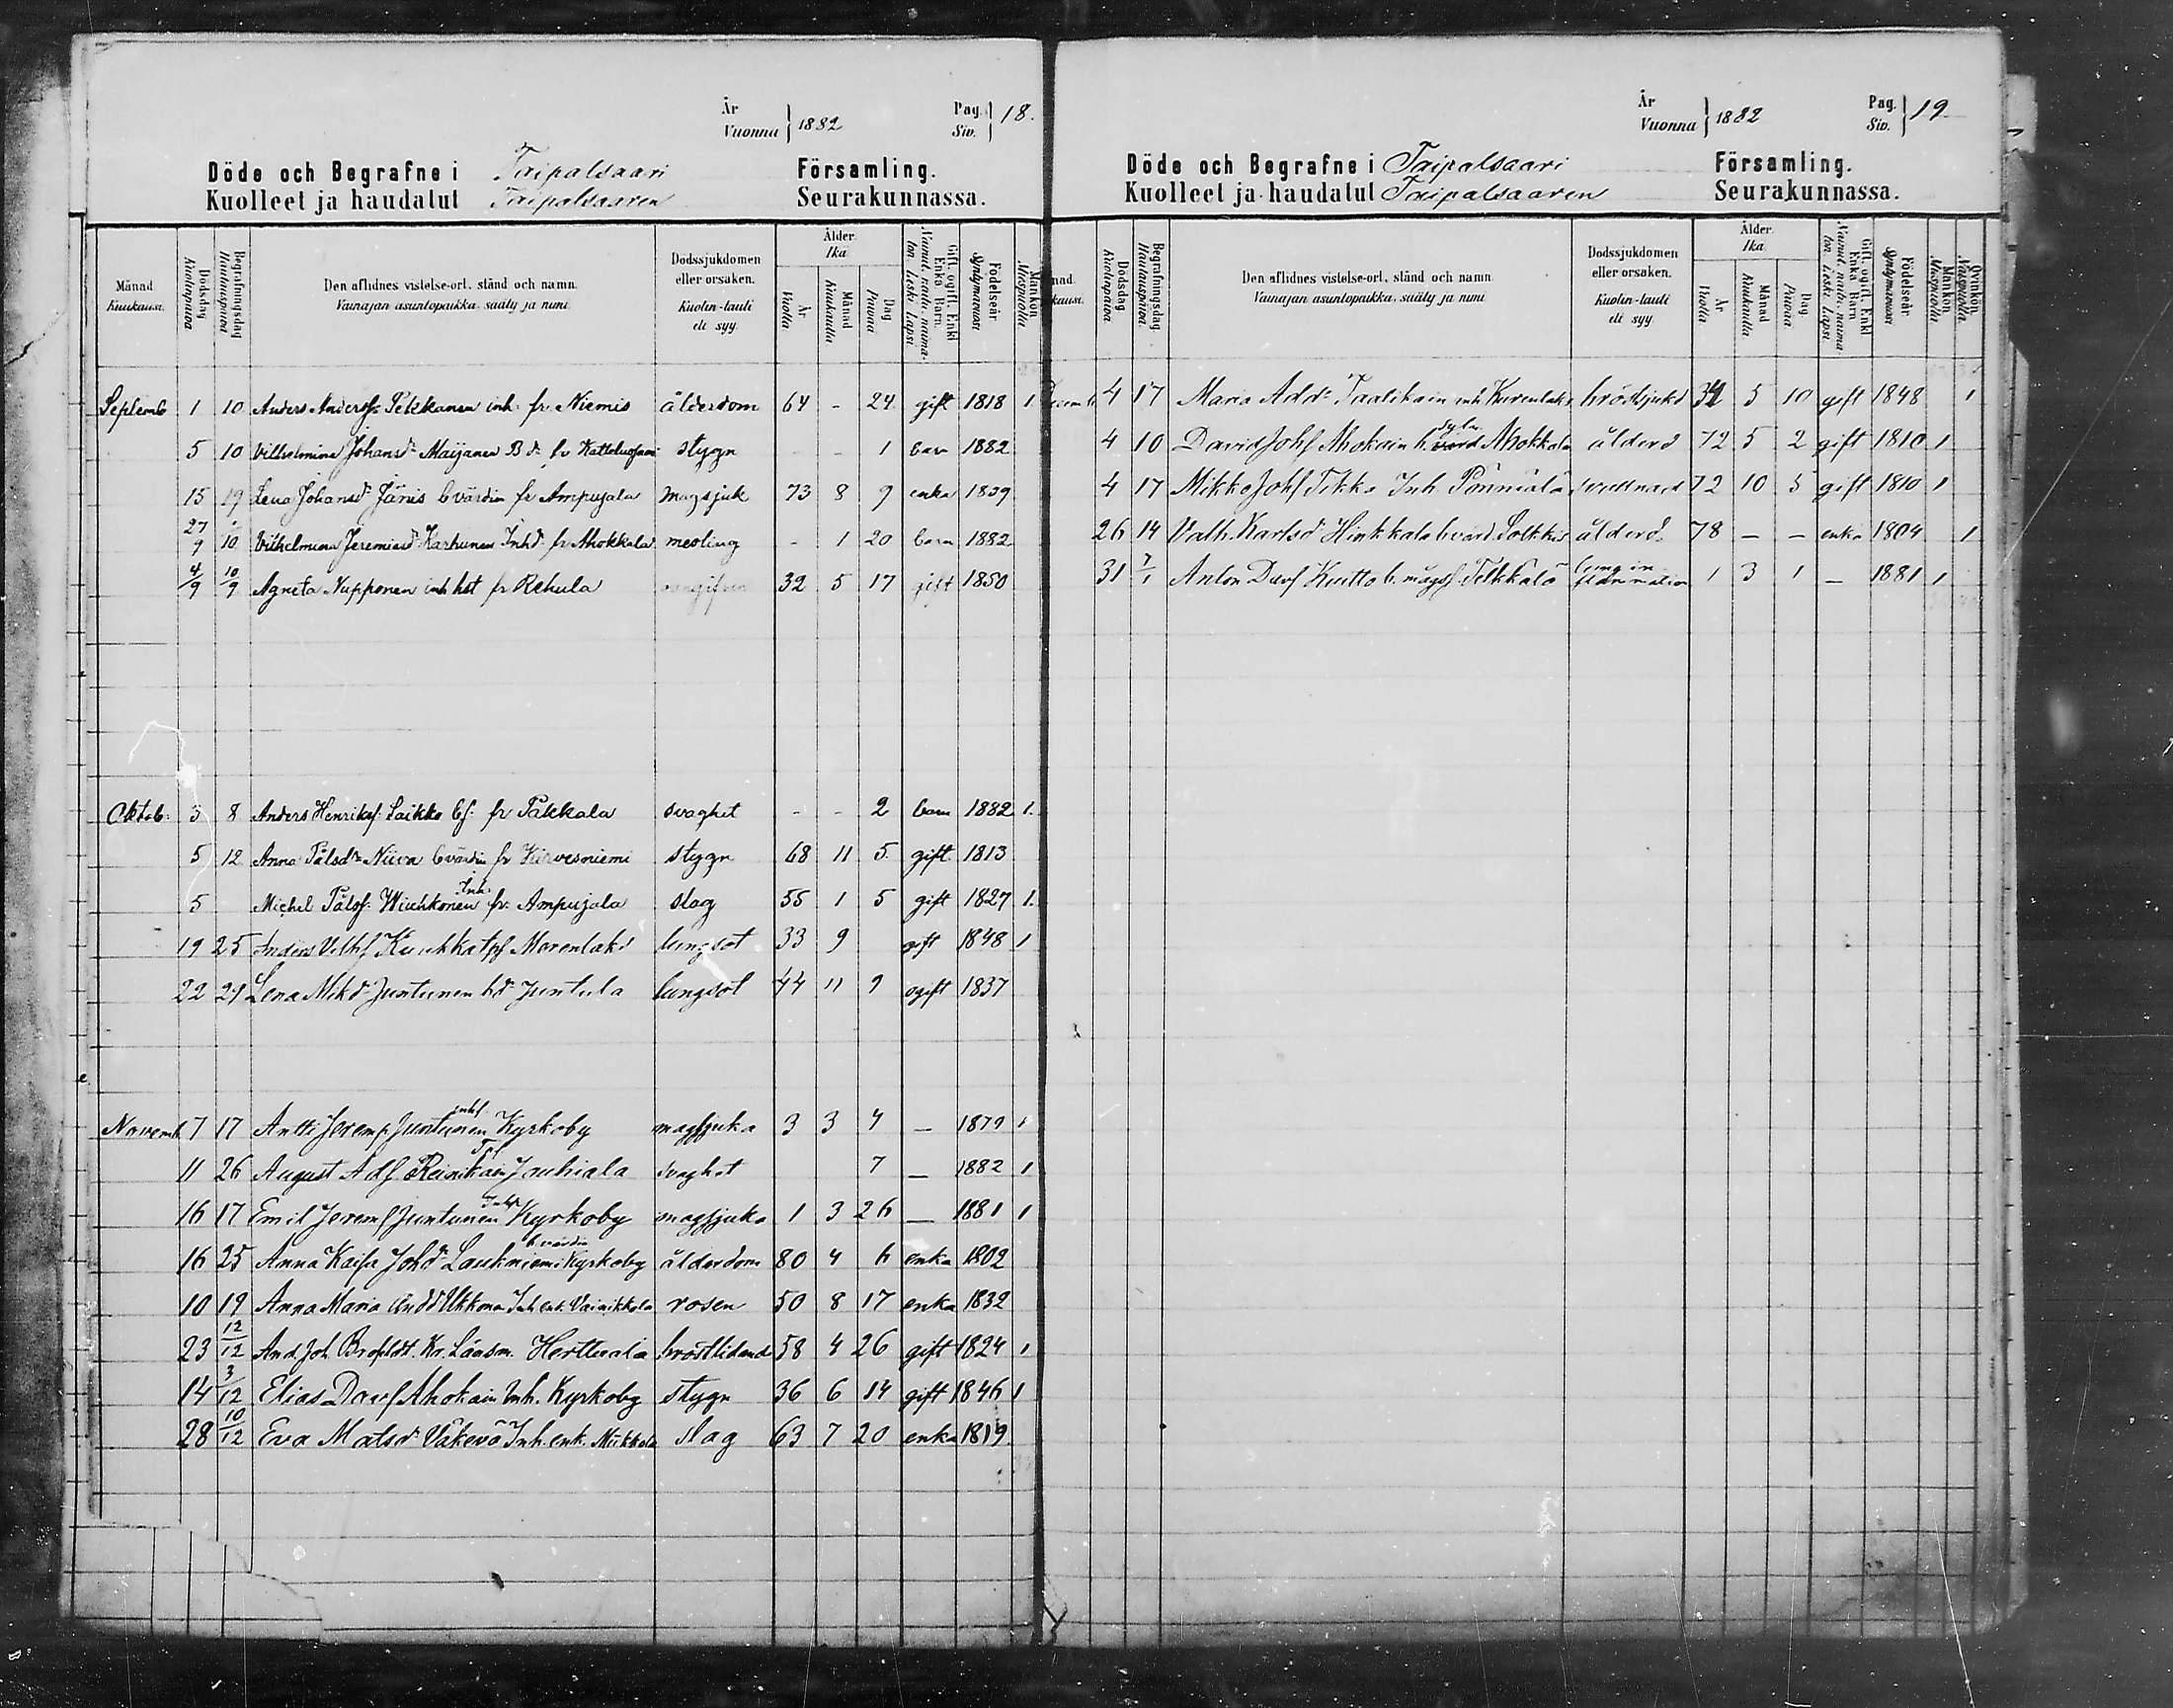 År
Vuonna } 1882
Pag.
Siv. } 18.
Döde och Begrafne i Taipalsaari Församling.
Kuolleet ja haudatut Taipalsaaren Seurakunnassa.
Månad. Kuukausi.
Dödsdag Kuolinpäivä
Begrafningsdag Hautauspäivä
Den aflidnes vistelse-ort, stånd och namn.
Vainajan asuntopaikka, sääty ja nimi.
Dödssjukdomen eller orsaken.
Kuolin-tauti eli syy.
Ålder. Ikä
År Vuotta
Månad Kuukautta
Dag Päivää
Gift, ogift, Enkl. Enka Barn.
Födelseår Syntymävuosi
Mankön Miespuolta
Septemb 1 10 Anders Andersf. Pekkanen inh. fr. Niemis ålderdom 64 - 24 gift 1818 1
5 10 Vilhelmina Johansdr Maijanen B.dr. fr styggn - - 1 barn 1882
15 19 Lena Johansdr Jänis bvärdin fr Ampujala magsjuk 73 8 9 enka 1809
27/9 10 Vilhelmina Jeremiasdr Karhunen Inhdr fr Ahokkala mesling - 1 20 barn 1882
4/9 10/9 Agneta Nupponen inh hst fr Rehula 32 5 17 gift 1850
Oktob: 3 8 Anders Henriksf. Laikko bf. fr Pakkala svaghet - - 2 barn 1882 1.
5 12 Anna Pålsdr Niiva bvärdin fr Kirvesniemi stygn 68 11 5 gift 1813
5 Michel Pålsf. Wiuhkonen Inh. fr. Ampujala slag 55 1 5 gift 1827 1.
19 25 Anders Vilhf Kuukka tpf Marenlaks lungsot 33 9 gift 1848 1
22 29 Lena Mikdr Juntunen bdr Juntula lungsot 44 11 9 ogift 1837
Novemb 7 17 Antti Jeremf. Juntunen inhf Kyrkoby magsjuka 3 3 4 — 1879 1
11 26 August Adf. Reinikain Jauhiala svaghet 7 — 1882 1
16 17 Emil Jeremf Juntunen Inhf Kyrkoby magsjuka 1 3 26 — 1881 1
16 25 Anna Kaisa Johdr Laukniemi bvärdin Kyrkoby ålderdom 80 4 6 enka 1802
10 19 Anna Maria Anddr Ukkonen Inh. enk. Vainikkala rosen 50 8 17 enka 1832
23 12/12 And Joh Brofeldt. Kr. Länsm. Herttuala bröstlidande 58 4 26 gift 1824 1
14 3/12 Elias Davf Ahokain Inh. Kyrkoby stygn 36 6 14 gift 1846 1
28 10/12 Eva Matsdr Väkevä Inh. enk. Mikkola slag 63 7 20 enka 1819
År
Vuonna } 1882
Pag.
Siv. } 19
Döde och Begrafne i Taipalsaari Församling.
Kuolleet ja haudatut Taipalsaaren Seurakunnassa.
Dödsdag Kuolinpäivä
Begrafningsdag Hautauspäivä
Den aflidnes vistelse-ort, stånd och namn.
Vainajan asuntopaikka, sääty ja nimi
Dödssjukdomen eller orsaken.
Kuolin-tauti eli syy.
Ålder. Ikä
År Vuotta
Månad Kuukautta
Dag Päivää
Gift, ogift, Enkl. Enka Barn
Födelseår Syntymävuosi
Mankön Miespuolta
Qvinkön Naispuolta
Decemb 4 17 Maria Addr Taalikain inh Kurenlaks bröstsjukd 34 5 10 gift 1848 1
4 10 David Johf Ahokain Ahokkala ålderd 72 5 2 gift 1810 1
4 17 Mikko Johf Tikka Inh. Pönniälä vattnad 72 10 5 gift 1810 1
26 14 Valb. Karlsdr Hinkkala bvärd. Solkkis ålderd. 78 — — enka 1804 1
31 7/1 Anton Davf Kuitto b. mågsf. Telkkälä lung inflammation 1 3 1 — 1881 1